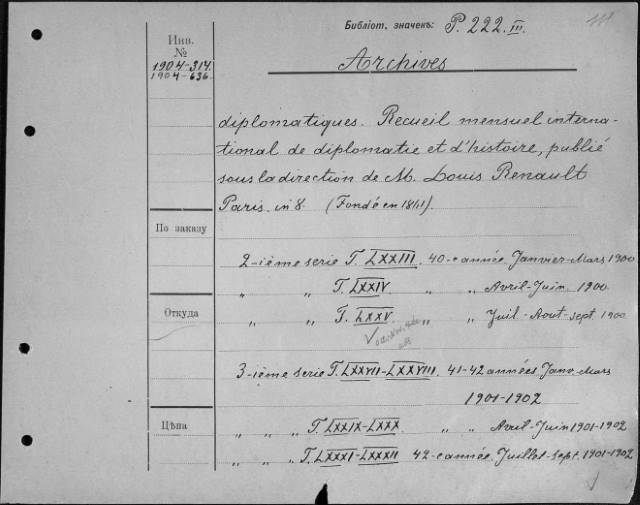 Библіот. значекъ: P. 222. III.
Инв.
№
1904-314
1904-636
Archives
diplomatiques. Recueil mensuel interna-
tional de diplomatie et d'histoire, publié
sous la direction de M. Louis Renault
Paris. in 8. (Fondé en 1861)
По заказу
2-ième serie T. LXXIII. 40-e année. Janvier-Mars 1900
" " T. LXXIV " " Avril-Juin. 1900
Откуда
" " T. LXXV. " " Juil-Aout-Sept. 1900
3-ième serie T. LXXVII-LXXVIII. 41-42 années. Janv-Mars
1901-1902
Цѣна
" " " T. LXXIX-LXXX " " Avril-Juin 1901-1902
" " " T. LXXXI-LXXXII 42-e année. Juillet-Sept. 1901-1902